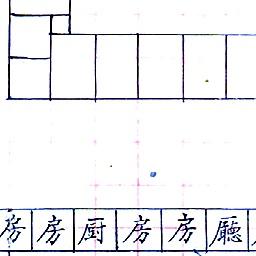 房房厨房房廳